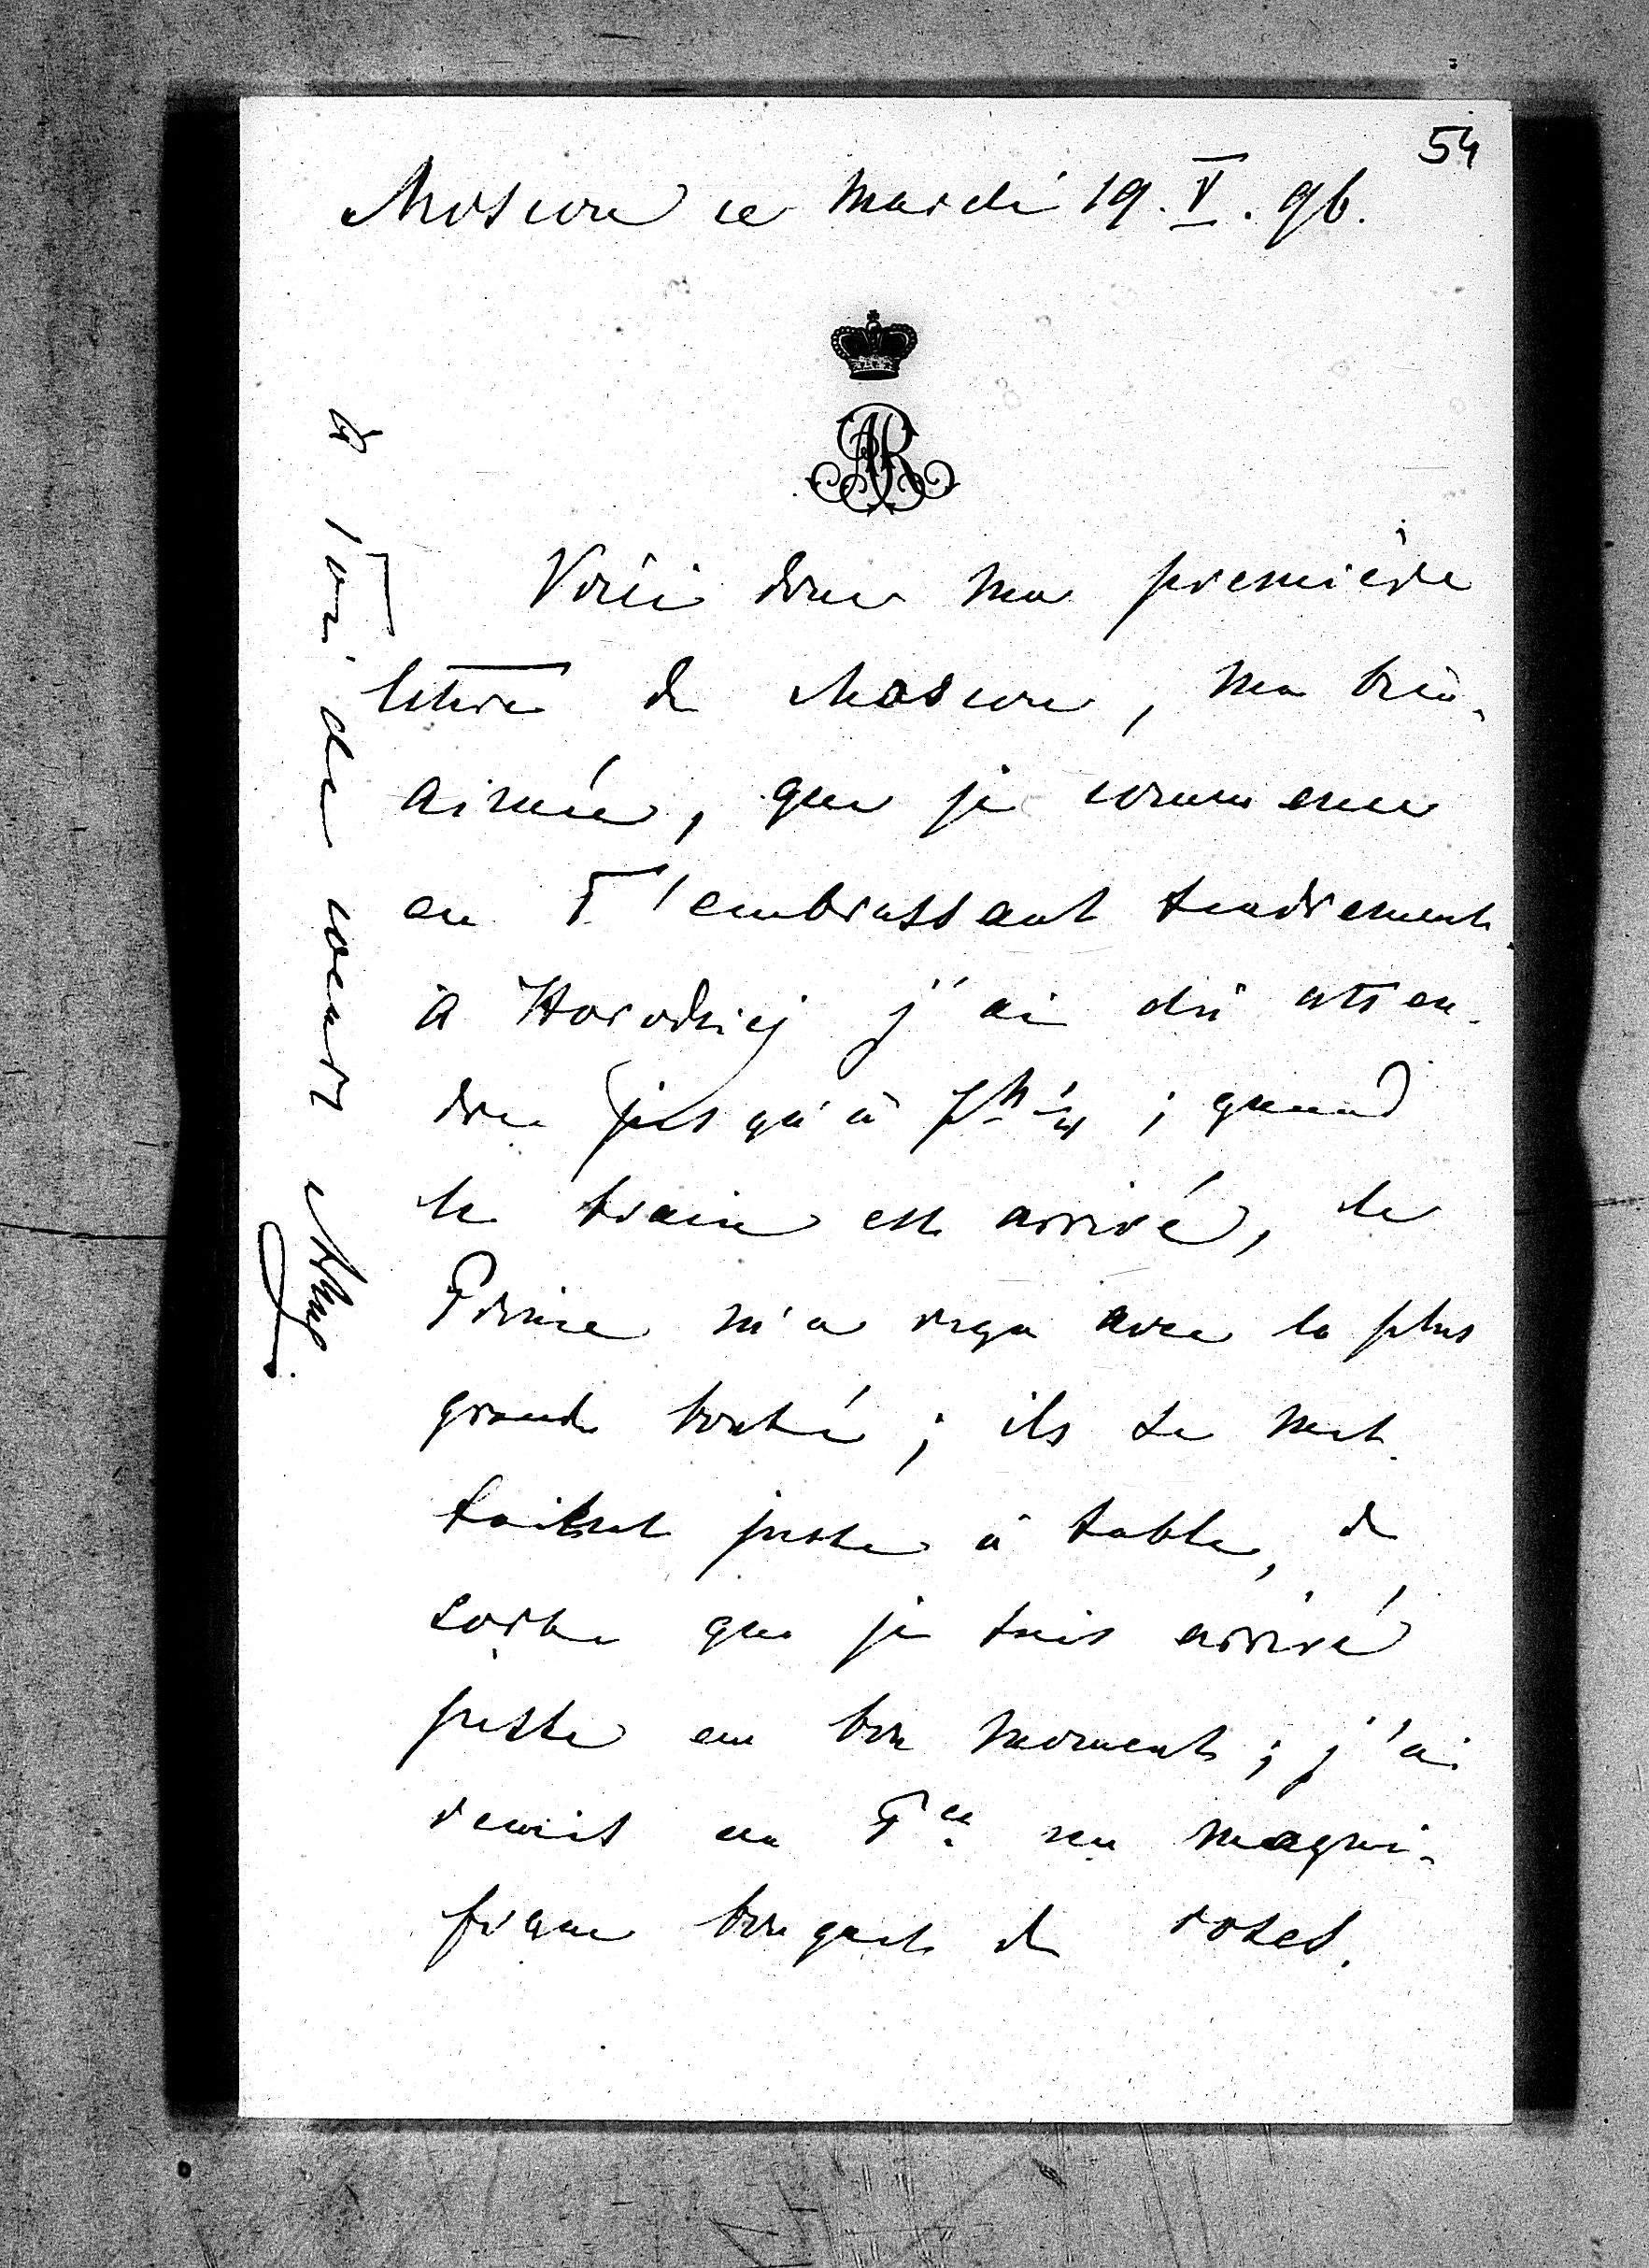 54
Moscou ce Mardi 19. V. 96.
AR
Voici donc ma première
lettre de Moscou, ma bien-
aimée, que je commence
en T'embrassant tendrement.
à Horodziej j'ai dû atten-
dre jusqu'à 7h 1/4 ; quand
le train est arrivé, le
Prince m'a reçu avec la plus
grande bonté ; ils se met-
taient juste à table, de
sorte que je suis arrivé
juste au bon moment ; j'ai
remis au Pce un magni-
fique bouquet de roses.
à Toi de coeur